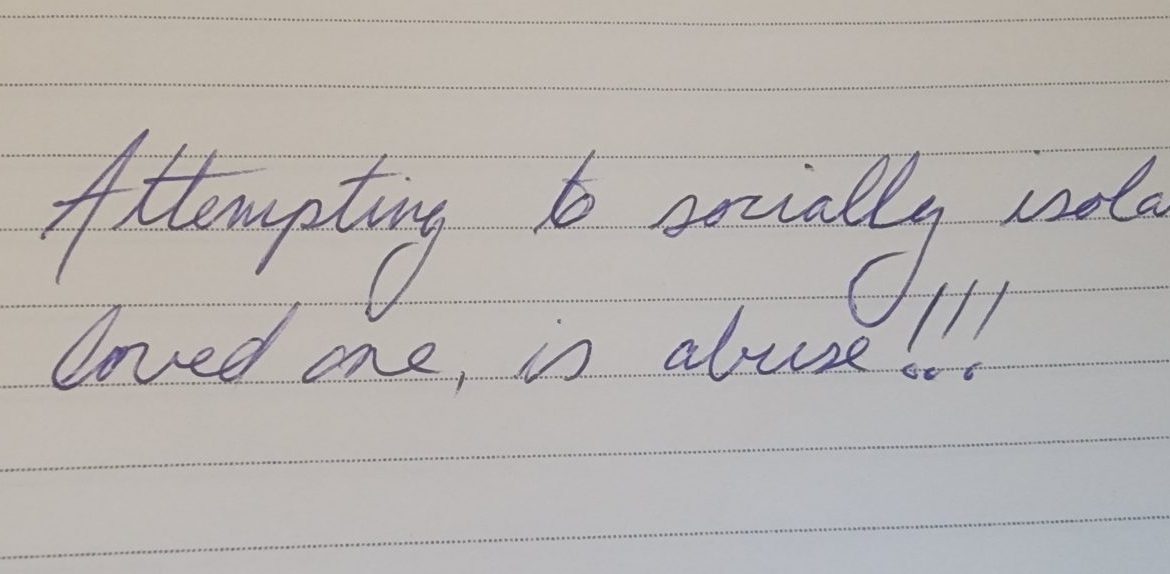 Attempting to socially isola
loved one, is abuse!!!